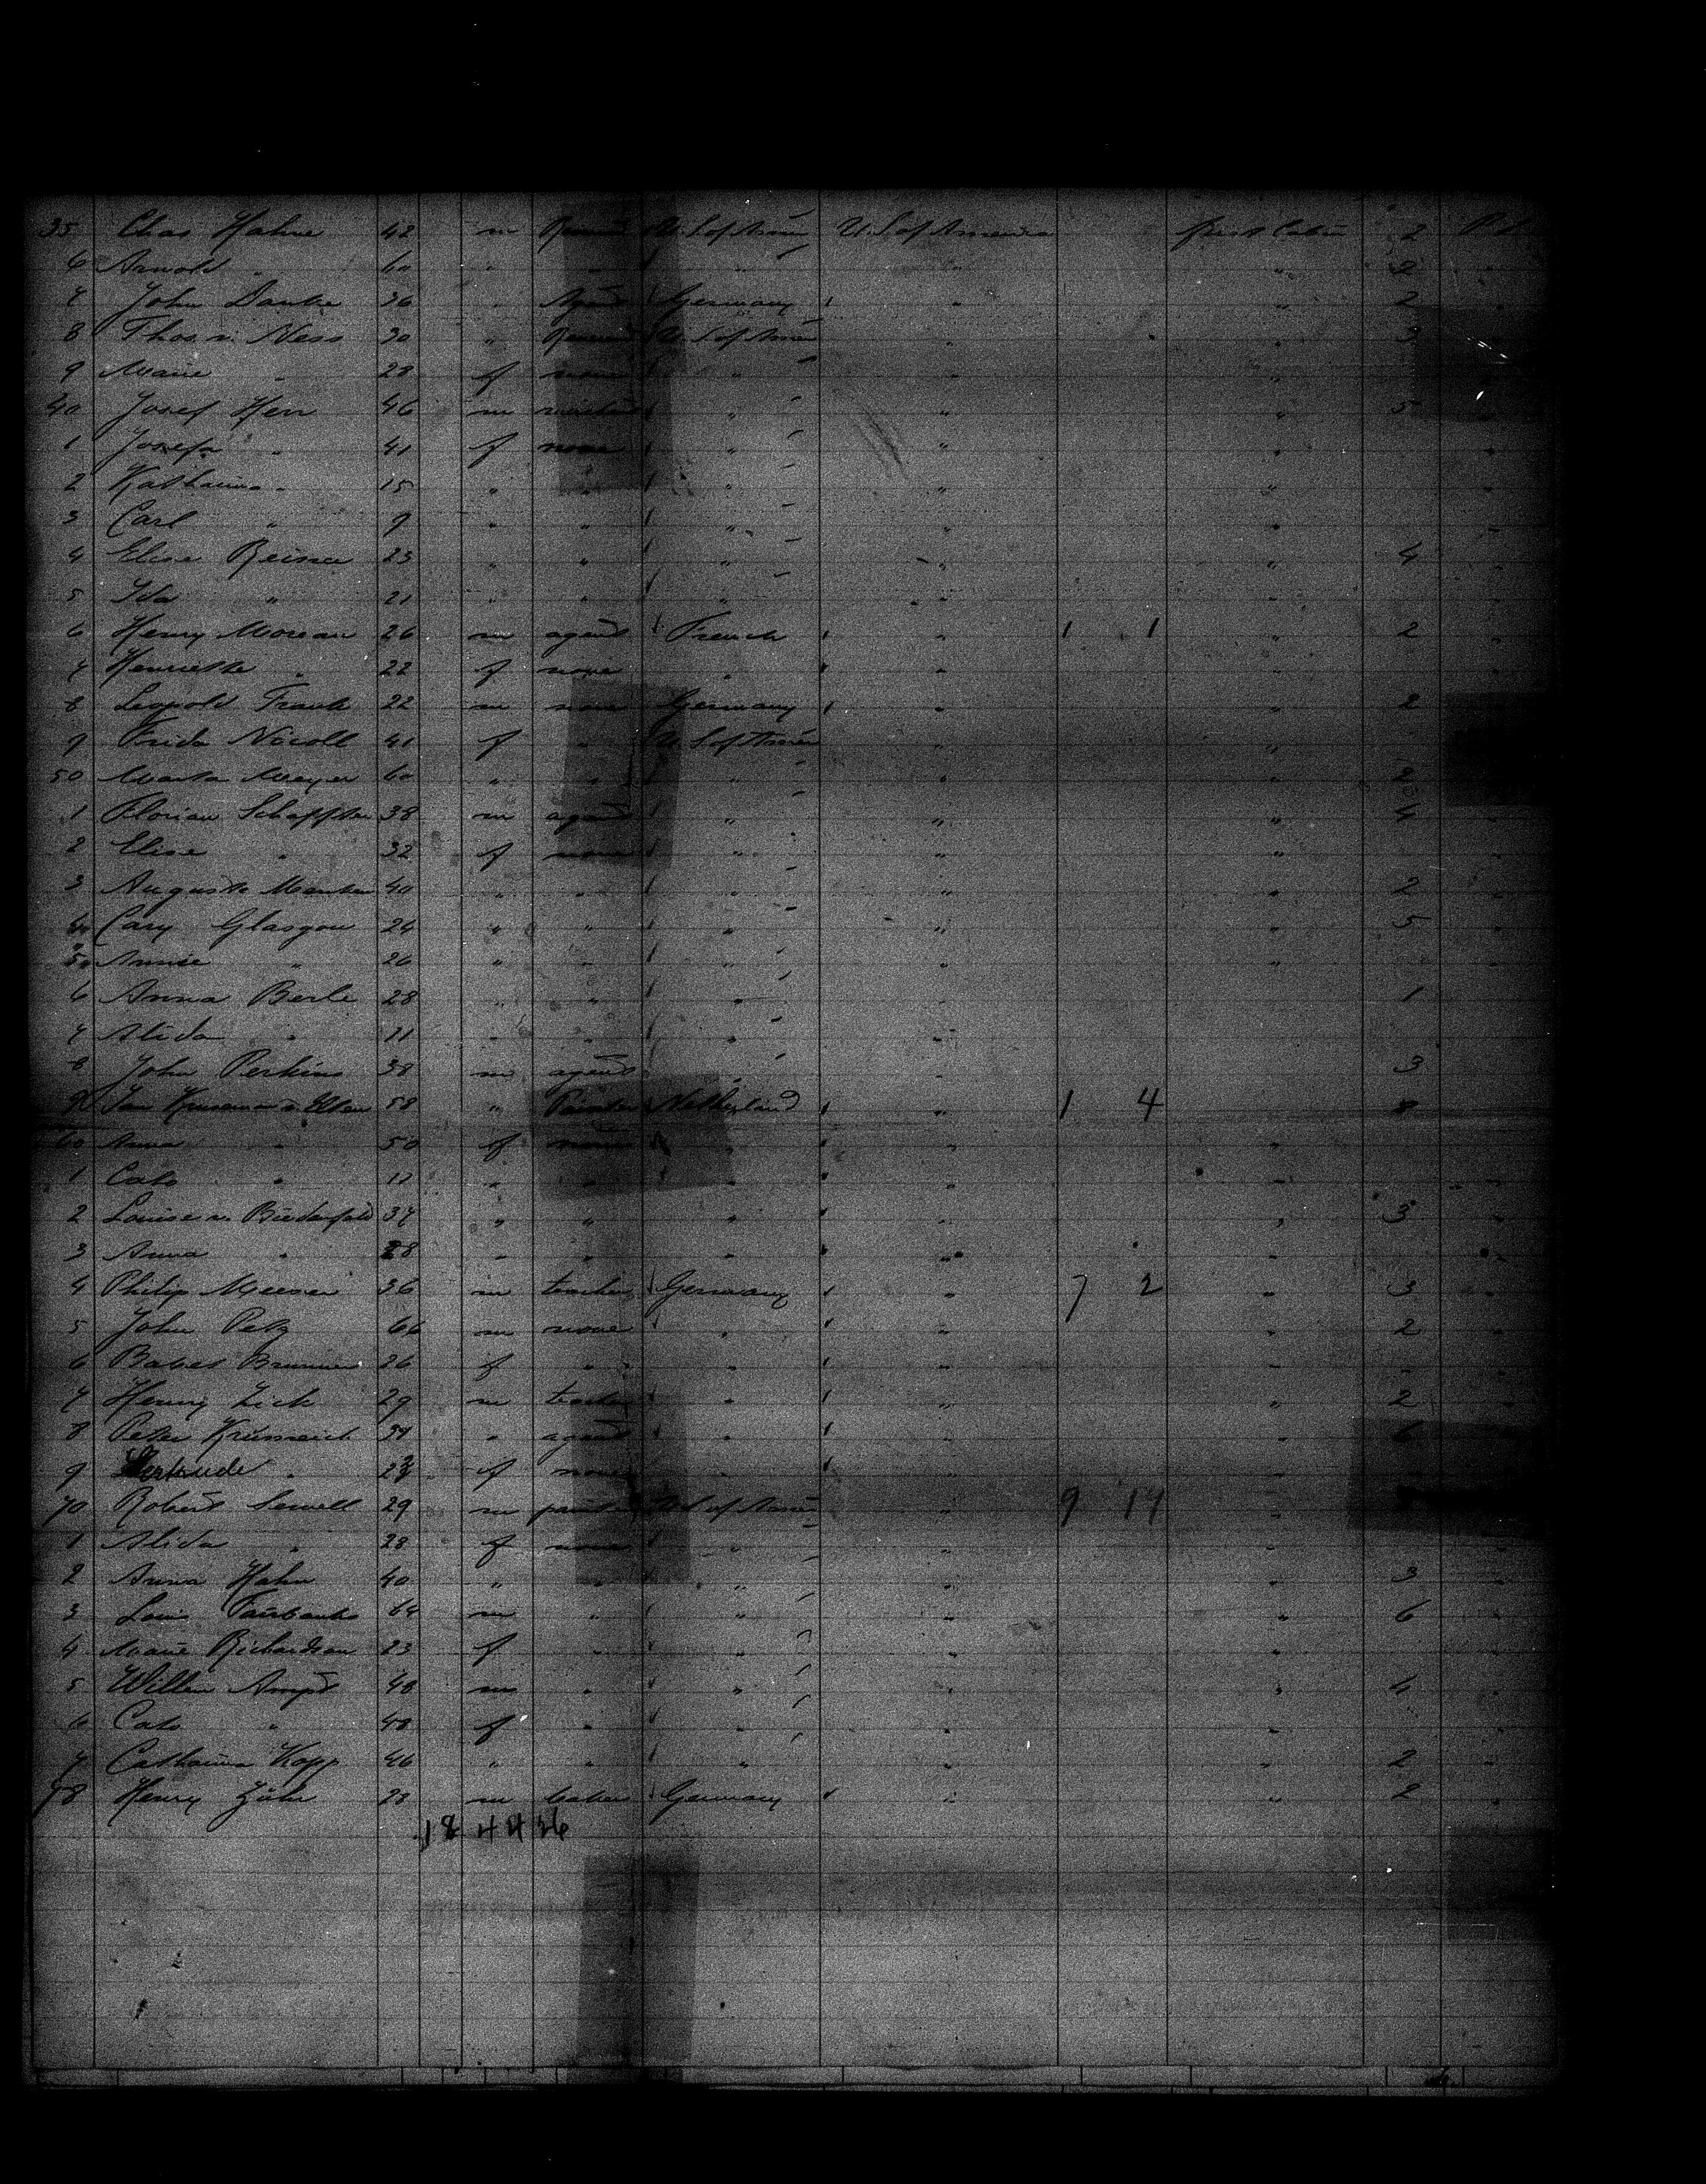 35 Chas Hahne 42 m U. S. of Am U. S. of America first Cabin 2
6 Arnold " 60 " " " " " 2
7 John Danke 36 " Agent Germany " " 2
8 Thos. v. Ness 30 " U. S. of Am " " 3
9 Marie " 28 f none " " "
40 Josef Herr 46 m " " " 5
1 Josefa " 41 f none " " "
2 Katharina " 15 " " " " "
3 Carl " 9 " " " " "
4 Elise 23 " " " " " 4
5 Ida " 21 " " " " "
6 Henry Moreau 26 m agent French " 1 1 " 2
7 Henriette " 22 f none " " "
8 Leopold Frank 22 m none Germany " " 2
9 Frida Nicoll 41 f " U. S. of Am " "
50 Marta Meyer 60 " " " " " 2
1 Florian 38 m agent " " " 4
2 Elise " 32 f none " " "
3 Auguste 40 " " " " " 2
4 Cary Glasgow 24 " " " " " 5
5 Annie " 26 " " " " "
6 Anna Berle 28 " " " " 1
7 Alida " 11 " " " "
8 John Perkins 38 m agent 3
9 Jan v. Elten 58 " Painter Netherland " 1 4 8
60 Anna " 50 f none " " "
1 Cato " 12 " " " "
2 Louise v. 37 " " " " " 3
3 Anna " 28 " " " " "
4 Philip Meesen 36 m teacher Germany " 7 2 " 3
5 John Petz 66 m none " " " 2
6 Babet Brunner 26 f " " " "
7 Henry Zick 29 m " " " 2
8 Peter 39 " agent " " " 6
9 Gertrude " 23 f none " " "
70 Robert Sewell 29 m U. S. of Am " 9 14 "
1 Alida " 28 f none " " "
2 Anna Hahn 40 " " " " " 3
3 Louis Fairbanks 64 m " " " " 6
4 Marie Richardson 23 f " " " "
5 Willem 48 m " " " " 4
6 Cato " 48 f " " " "
7 Catharina Kopp 46 " " " " " 2
78 Henry 28 m baker Germany " " 2
18 44 36